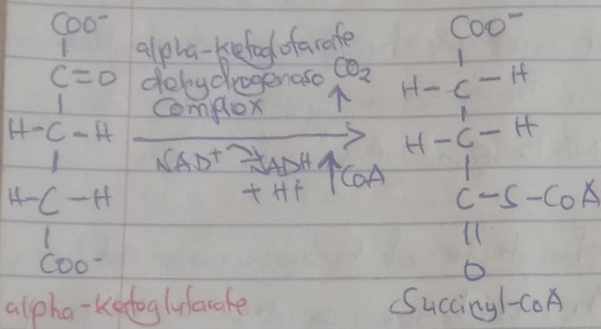 COO⁻
C=O
H-C-H
H-C-H
COO⁻
alpha-ketoglutarate
alpha-ketoglutarate
dehydrogenase CO2
complex
NAD+ NADH
+ H+ CoA
COO⁻
H-C-H
H-C-H
C-S-CoA
||
O
Succinyl-CoA